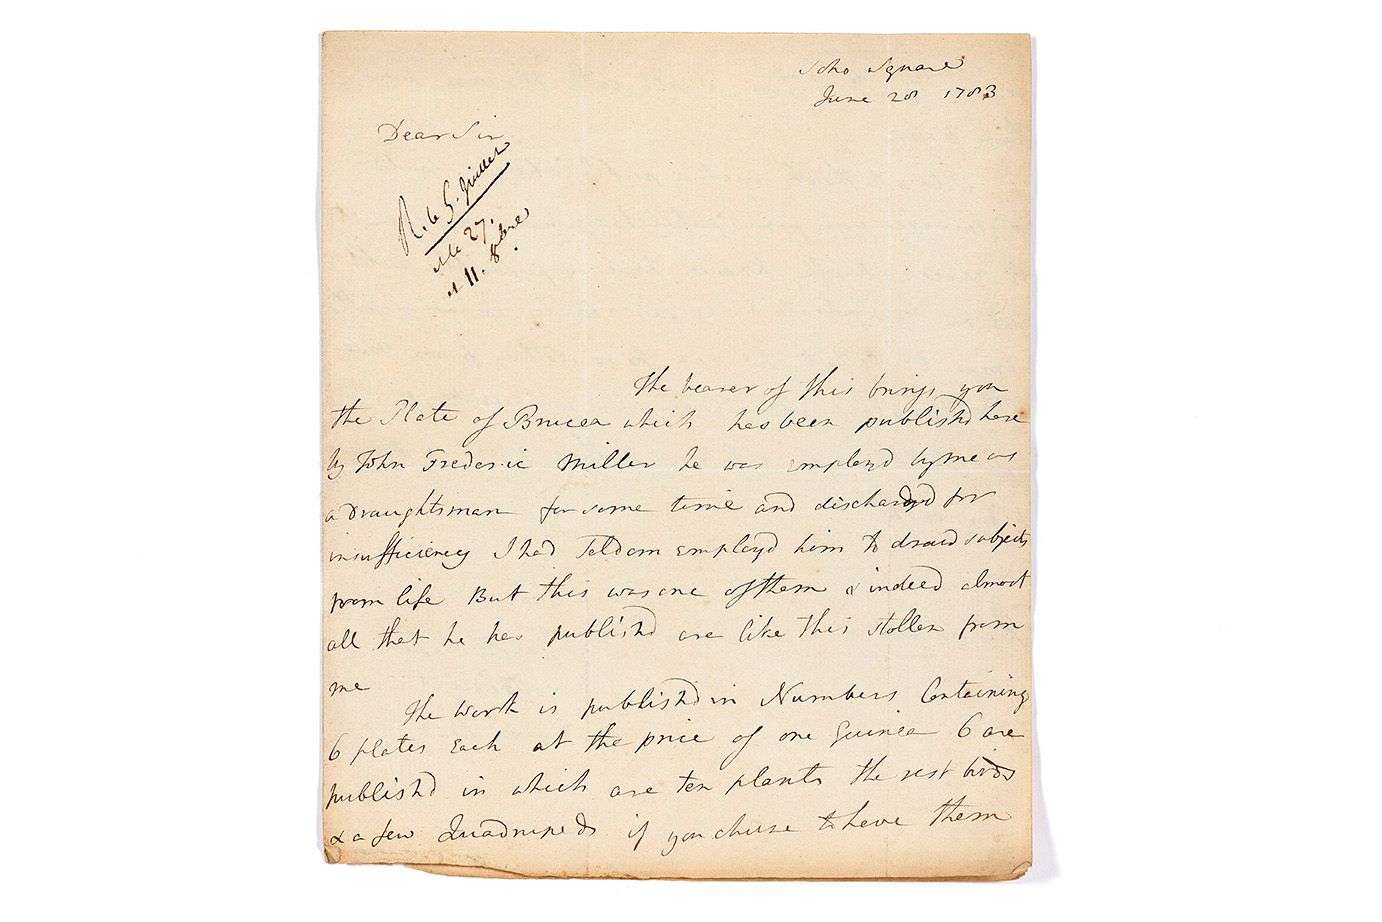 Soho Square
June 28 1783
Dear Sir
R. le 5. Juillet
le 27.
11. 8bre
The bearer of this brings you
the Plate of Brucea which has been publishd here
by John Frederic Miller he was employd by me as
a Draughtsman for some time and dischargd for
insufficiency I had Seldom employd him to draw subjects
from life But this was one of them & indeed almost
all that he has publishd are like this stollen from
me
The work is publishd in Numbers Containing
6 plates Each at the price of one Guinea 6 are
publishd in which are ten plants the rest birds
& a few Quadrupeds if you chuse to have them